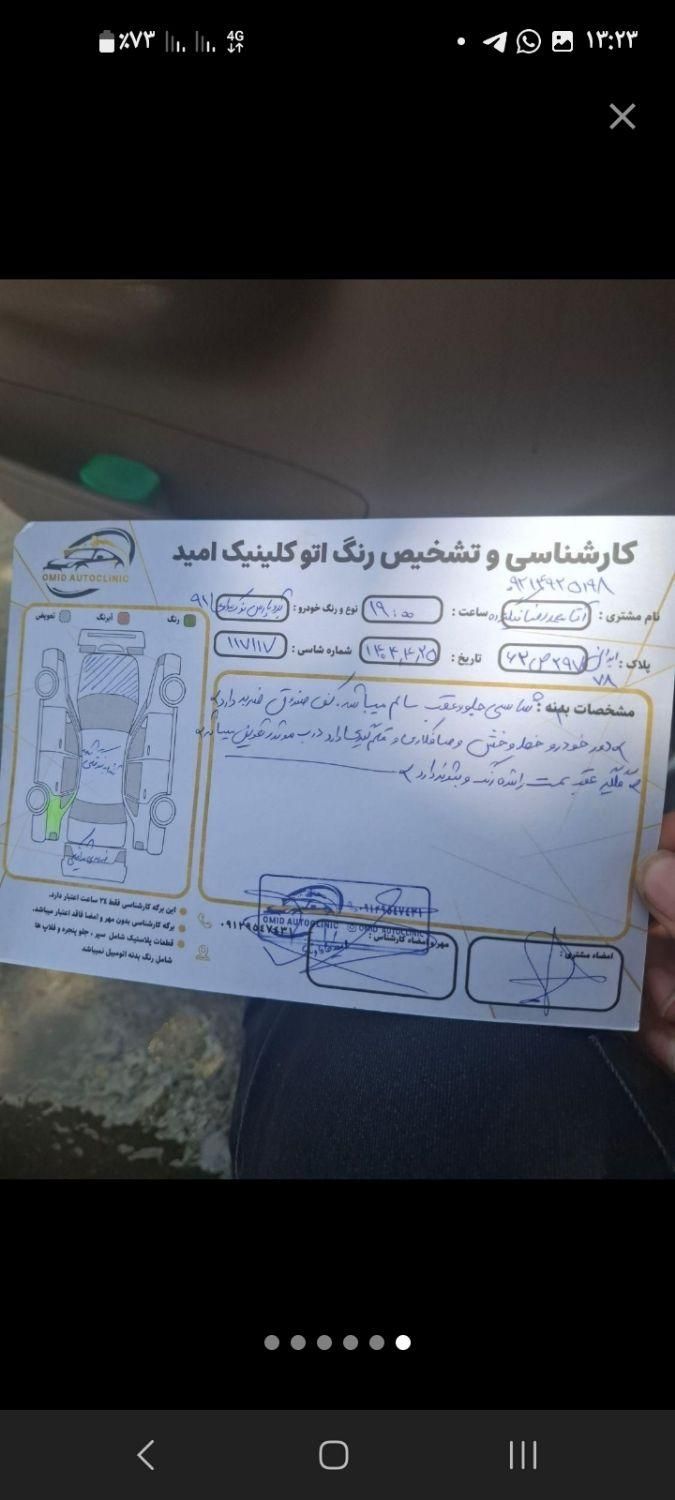 ۱۳:۲۳
4G
٪۷۳
کارشناسی و تشخیص رنگ اتو کلینیک امید
OMID AUTOCLINIC
۰۹۲۱۴۹۲۵۱۹۸
نام مشتری :
ساعت : ۱۹:۰۰
نوع و رنگ خودرو : ۹۱
پلاک : ایران ۷۸
تاریخ : ۱۴۰۴,۴,۲۵
شماره شاسی : ۱۱۷۱۱۷
رنگ
آبرنگ
تعویض
مشخصات بدنه : شاسی جلو و عقب سالم میباشد. کف صندوق ضربه دارد
دور خودرو خط و خش و صافکاری و درب موتور تعویض میباشد
گلگیر عقب سمت رنگ و بتونه دارد
این برگه کارشناسی فقط ۲۴ ساعت اعتبار دارد.
برگه کارشناسی بدون مهر و امضا فاقد اعتبار میباشد.
قطعات پلاستیک شامل سپر ، جلو پنجره و قلاب ها
شامل رنگ بدنه اتومبیل نمیباشد
۰۹۱۲۹۵۴۷۴۳۱
OMID AUTOCLINIC
مهر و امضاء کارشناس :
امضاء مشتری :